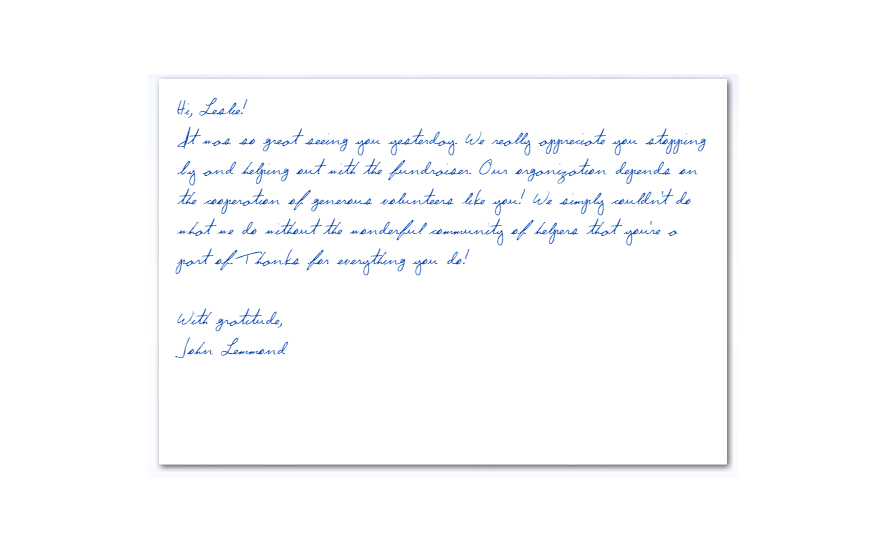 Hi, Leslie!
It was so great seeing you yesterday. We really appreciate you stopping
by and helping out with the fundraiser. Our organization depends on
the cooperation of generous volunteers like you! We simply couldn't do
what we do without the wonderful community of helpers that you're a
part of. Thanks for everything you do!
With gratitude,
John Lemmond